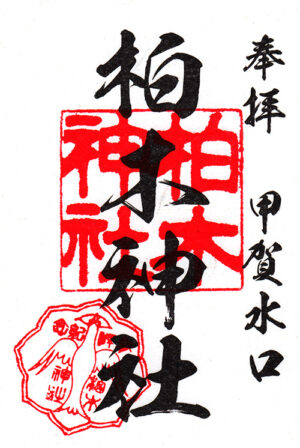 奉拝 甲賀水口
柏木神社
柏木
神社